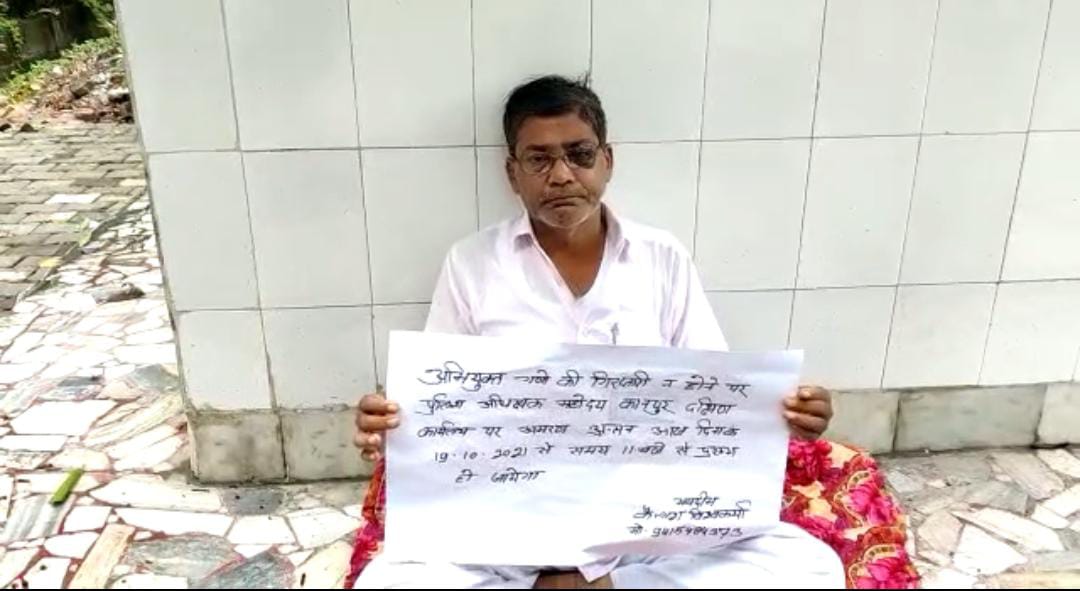 अभियुक्त गणो की गिरफ्तारी न होने पर
पुलिस अधीक्षक महोदय कानपुर दक्षिण
कार्यालय पर आमरण अनसन आज दिनांक
19.10.2021 से समय 11 बजे से प्रारम्भ
हो जायेगा
भवदीय
कैलाश विश्वकर्मा
मो. 9415484373